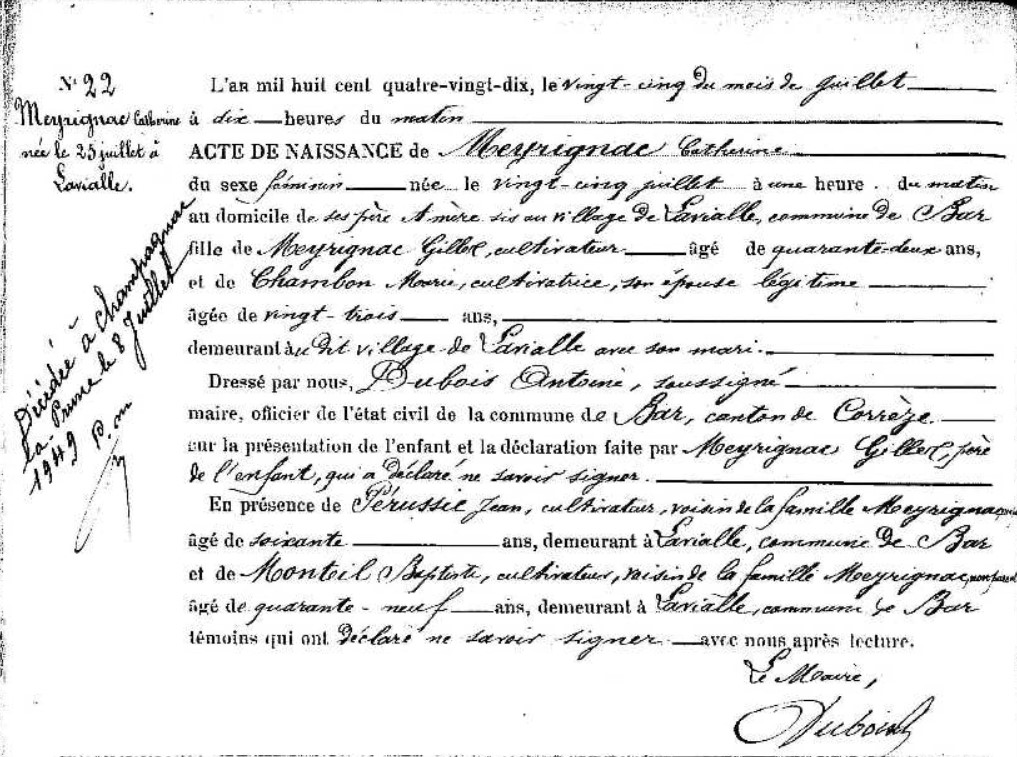 N° 22
Meyrignac Catherine
née le 25 juillet à
Lavialle.
Décédée à Champagnac
la Prune le 8 Juillet
1949
L'an mil huit cent quatre-vingt-dix, le vingt-cinq du mois de juillet
à dix heures du matin
ACTE DE NAISSANCE de Meyrignac Catherine
du sexe féminin née le vingt-cinq juillet à une heure du matin
au domicile de ses père & mère sis au village de Lavialle, commune de Bar
fille de Meyrignac Gilles, cultivateur âgé de quarante-deux ans,
et de Chambon Marie, cultivatrice, son épouse légitime
âgée de vingt-trois ans,
demeurant au dit village de Lavialle avec son mari.
Dressé par nous, Dubois Antoine, soussigné
maire, officier de l'état civil de la commune de Bar, canton de Corrèze.
sur la présentation de l'enfant et la déclaration faite par Meyrignac Gilles, père
de l'enfant, qui a déclaré ne savoir signer.
En présence de Pérussie Jean, cultivateur, voisin de la famille Meyrignac,
âgé de soixante ans, demeurant à Lavialle, commune de Bar
et de Monteil Baptiste, cultivateur, voisin de la famille Meyrignac, non parent
âgé de quarante-neuf ans, demeurant à Lavialle, commune de Bar
témoins qui ont déclaré ne savoir signer avec nous après lecture.
Le Maire,
Dubois